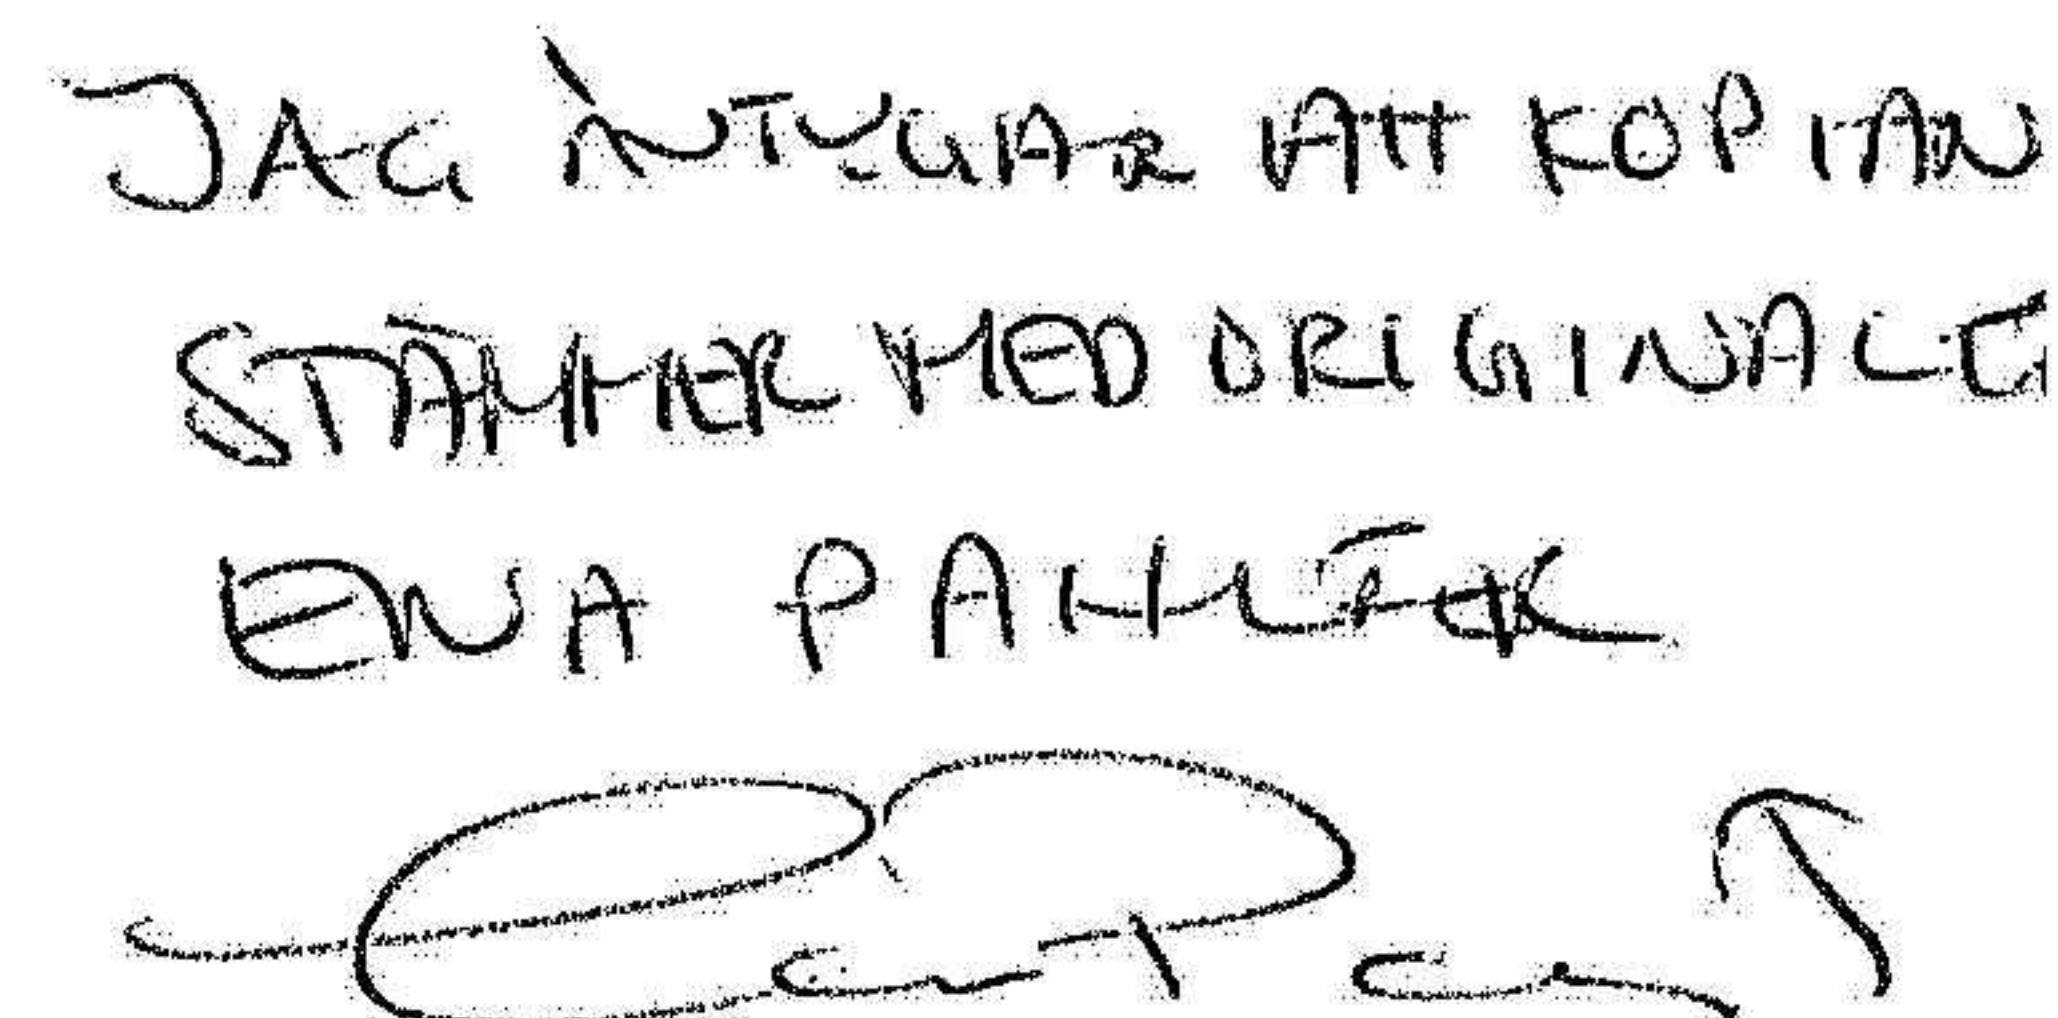 JAG INTYGAR ATT KOPIAN
STÄMMER MED ORIGINALE
ENA